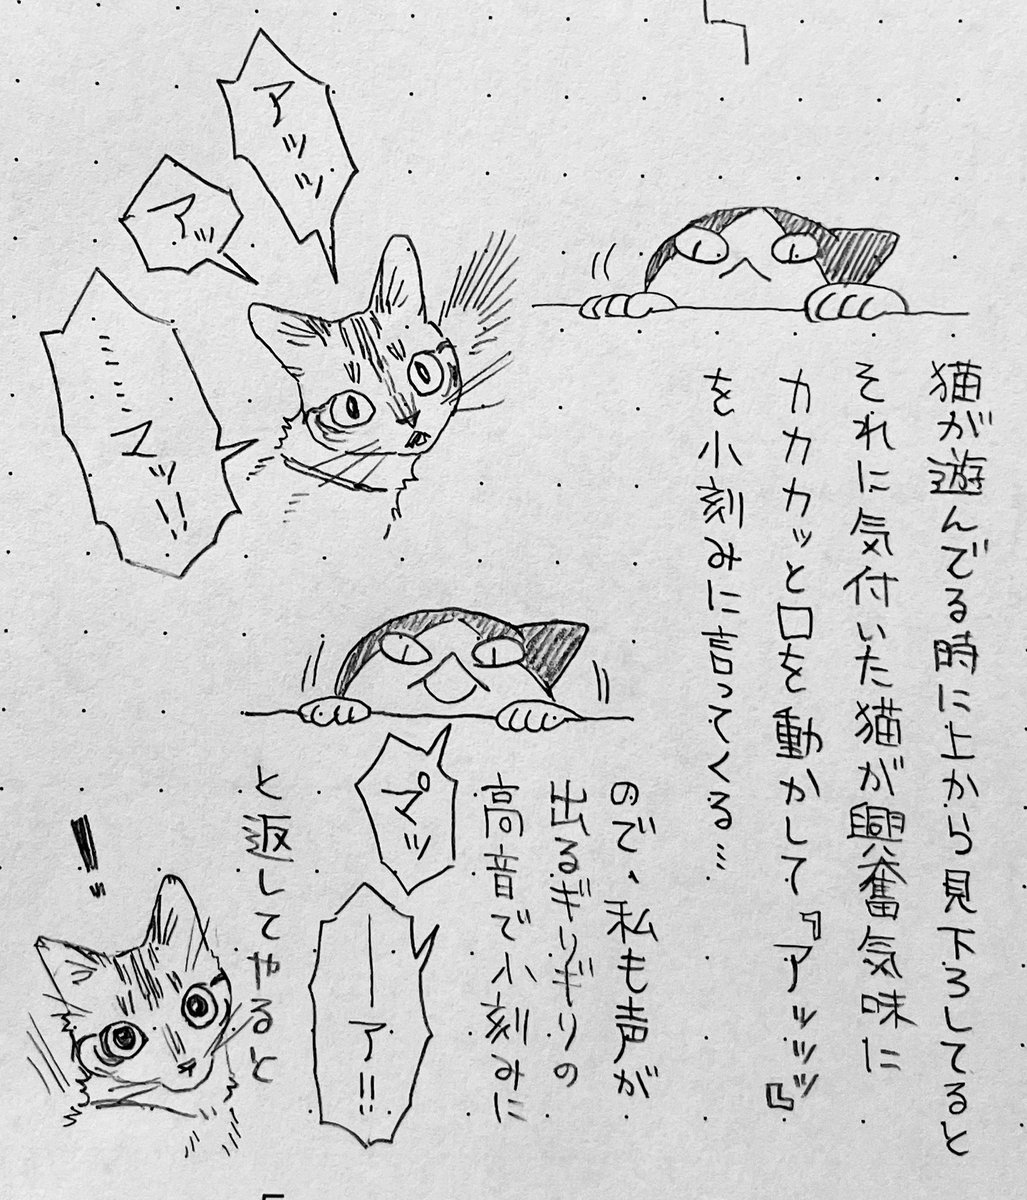 猫が遊んでる時に上から見下ろしてると
それに気付いた猫が興奮気味に
カカカッと口を動かして『アッッッ』
を小刻みに言ってくる…
アッッッ
アッ
……マッ!!
ので、私も声が
出るギリギリの
高音で小刻みに
マ゜ッ
――ア!!
と返してやると
!